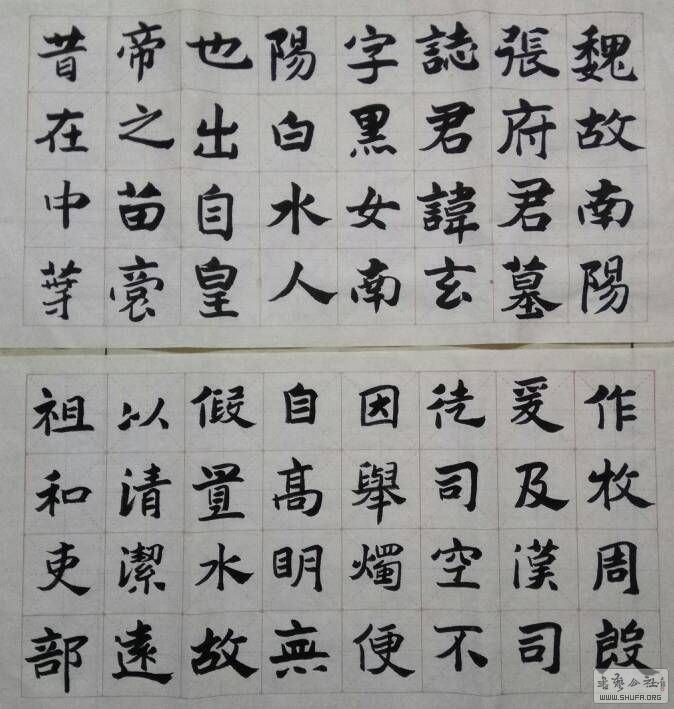 魏故南陽
張府君墓
誌君諱玄
字黑女南
陽白水人
也出自皇
帝之苗裔
昔在中葉
作牧周殷
爰及漢司
徒司空不
因舉燭便
自高明無
假置水故
以清潔遠
祖和吏部
WWW.SHUFA.ORG